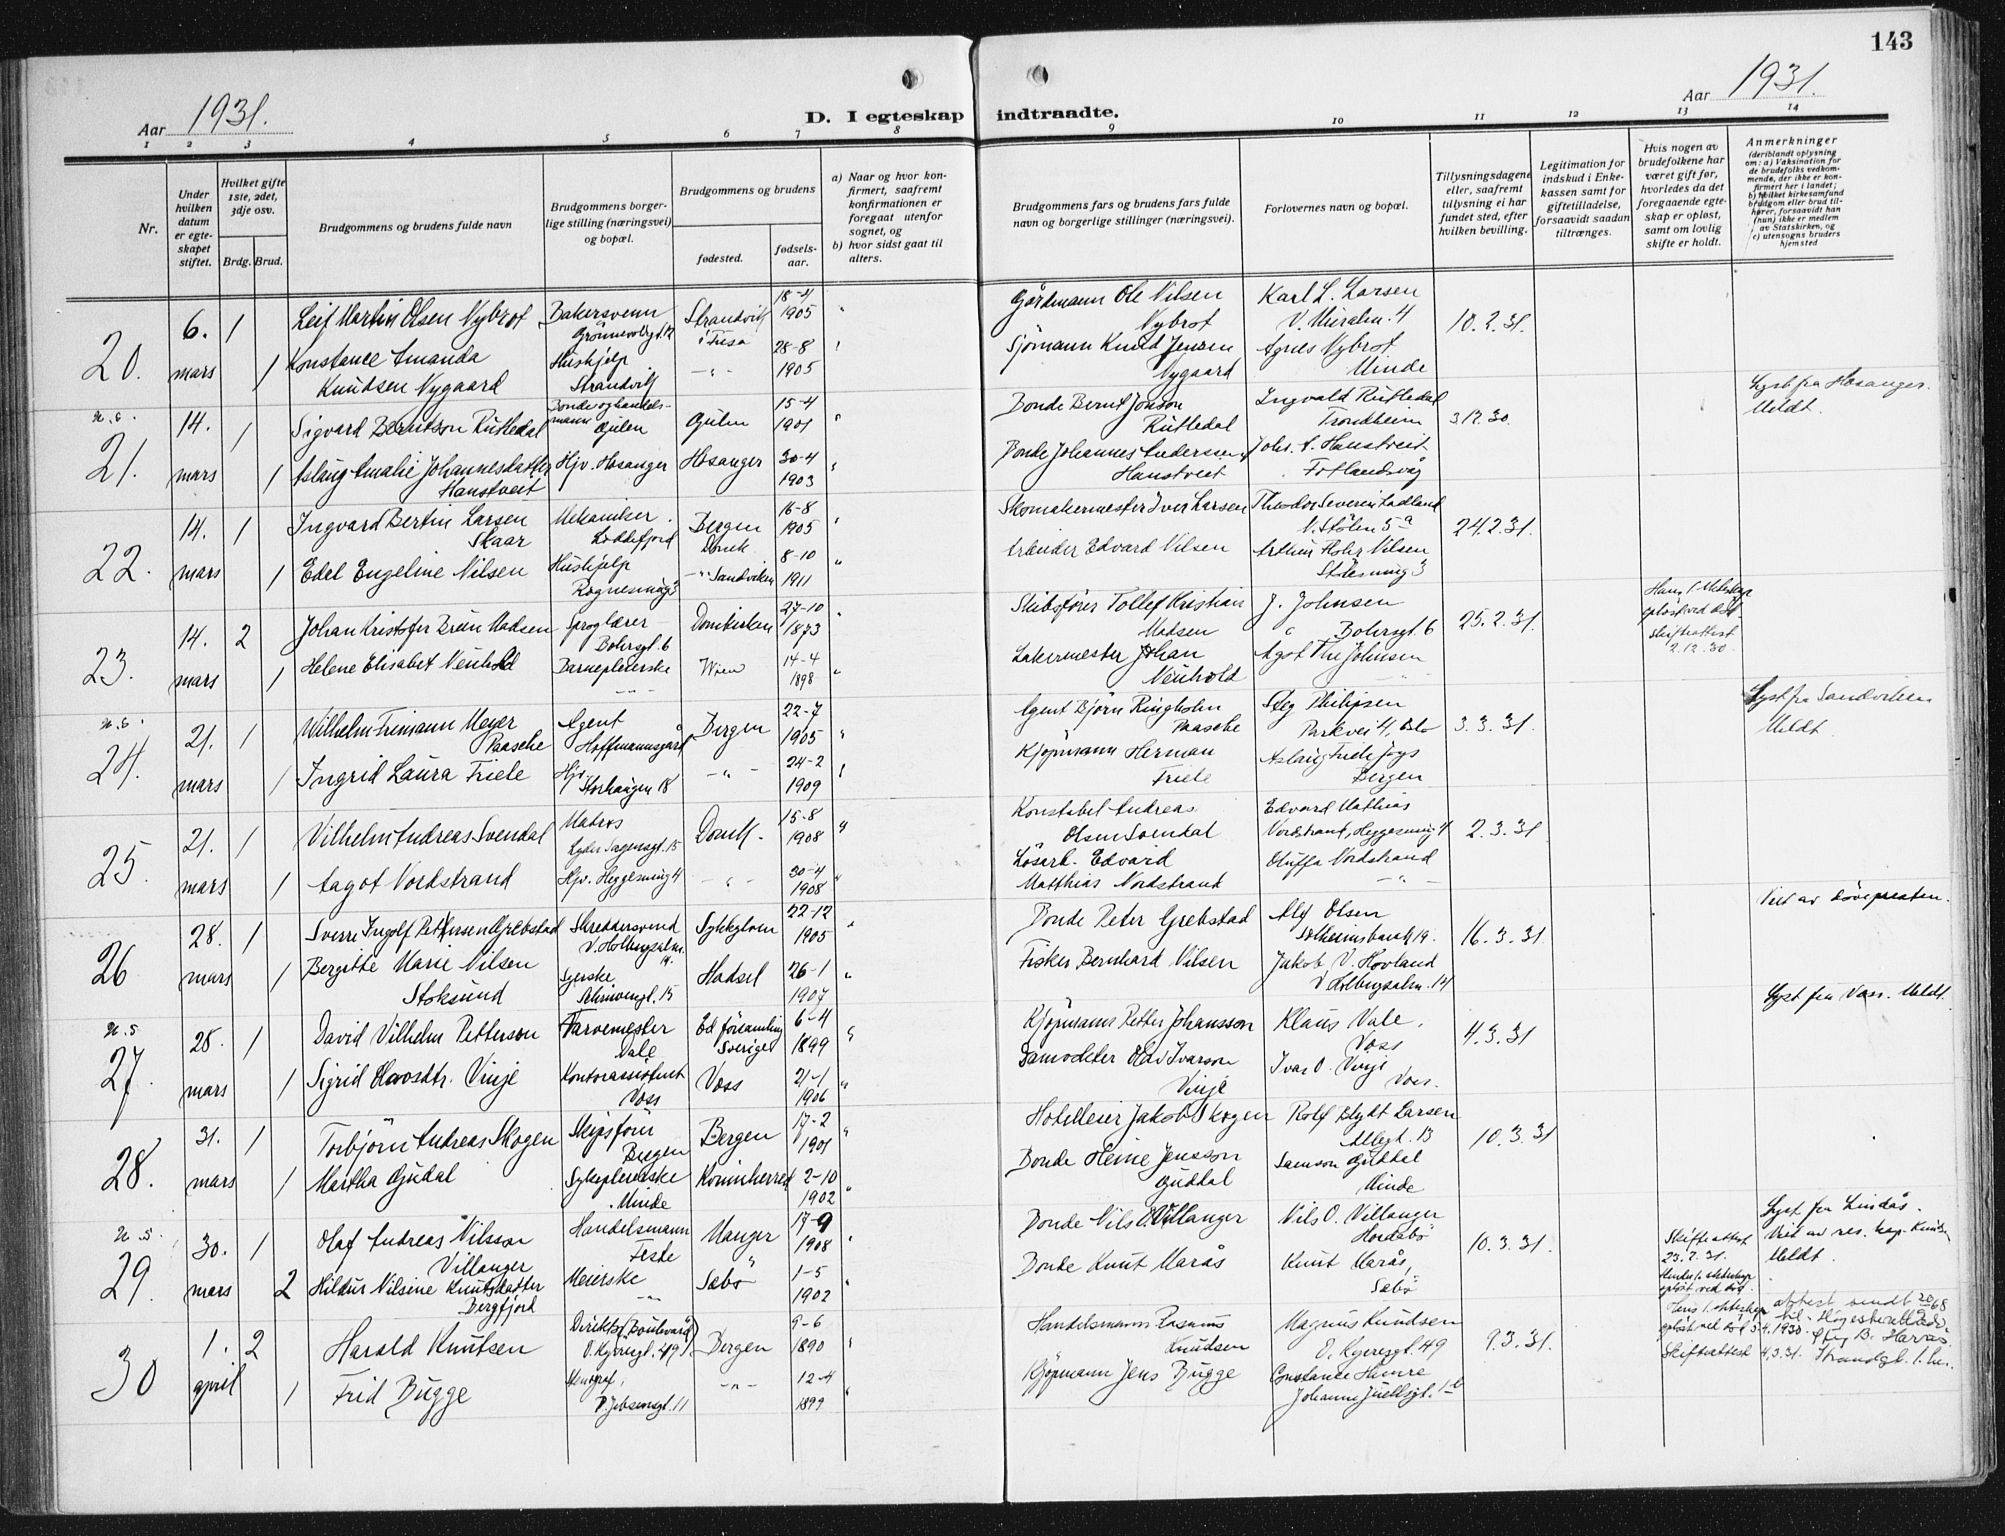 143
Aar 1931.
D. I egteskap indtraadte.
Aar 1931.
1 2 3 4 5 6 7 8 9 10 11 12 13 14
Nr.
Under hvilken datum er egteskapet stiftet.
Hvilket gifte 1ste, 2det, 3dje osv.
Brdg. Brud.
Brudgommens og brudens fulde navn
Brudgommens borgerlige stilling (næringsvei) og bopæl.
Brudgommens og brudens
fødested.
fødselsaar.
a) Naar og hvor konfirmert, saafremt konfirmationen er foregaat utenfor sognet, og
b) hvor sidst gaat til alters.
Brudgommens fars og brudens fars fulde navn og borgerlige stillinger (næringsvei).
Forlovernes navn og bopæl.
Tillysningsdagene eller, saafremt tillysning ei har fundet sted, efter hvilken bevilling.
Legitimation for indskud i Enkekassen samt for giftetilladelse, forsaavidt saadan tiltrænges.
Hvis nogen av brudefolkene har været gift før, hvorledes da det foregaaende egteskap er opløst, samt om lovlig skifte er holdt.
Anmerkninger
(deriblandt oplysning om: a) Vaksination for de brudefolks vedkommende, der ikke er konfirmert her i landet; b) hvilket kirkesamfund brudgom eller brud tilhører, forsaavidt han (hun) ikke er medlem av Statskirken, og c) utensogns bruders hjemsted
20. 6. mars 1 Leif Martin Olsen Nybrot Bakersvenn Strandvik i Fusa 18-4 1905 Gårdmann Ole Nilsen Nybrot Karl L. Larsen 10.2.31.
1 Konstance Amanda Knudsen Nygaard Hushjelp Strandvik 28-8 1905 Sjömann Knud Jensen Nygaard Agnes Nybrot Minde
u.s. 21. 14. mars 1 Sigvard Berntson Rutledal Bonde og handelsmann Gulen Gulen 15-4 1901 Bonde Bernt Jonson Rutledal Ingvald Rutledal Trondheim 3.12.30. Lyst fra Hosanger. Meldt.
1 Aslaug Amalie Johannesdatter Hanstveit Hjv. Hosanger Hosanger 30-4 1903 Bonde Johannes Anderssen Hanstveit Johs. A. Hanstveit Fotlandsvåg
22. 14. mars 1 Ingvard Bertin Larsen Skaar Mekaniker Loddefjord Bergen Domk 16-8 1905 Skomakermester Iver Larsen Theodor Severin Ladland N. Stölen 5a 24.2.31.
1 Edel Engeline Nilsen Hushjelp Rognesmug 3 Sandviken 8-10 1911 Arbeider Edvard Nilsen Nilsen Stölesmug 3
23. 14. mars 2 Johan Kristofer Brun Madsen Sproglærer Bohrsgt. 6 Domkirken 27-10 1873 Skibsförer Tollef Kristian Madsen J. Johnsen Bohrsgt. 6 25.2.31. Hans 1. ekteskap oplöst ved död. Skifteattest 2.12.30.
1 Helene Elisabet Neuhold Barnepleierske Wien 14-4 1898 Lakermester Johan Neuhold Agot Johnsen
u.s. 24. 21. mars 1 Wilhelm Frimann Meyer Paasche Agent Hoffmannsgård Bergen 22-7 1905 Agent Björn Ringholm Paasche Steg Philipsen Parkvei 4, Oslo 3.3.31. Lyst fra Sandviken Meldt.
1 Ingrid Laura Friele Hjv. Storhaugen 18 24-2 1909 Kjöpmann Herman Friele Aslaug Friele Bergen
25. 21. mars 1 Vilhelm Andreas Svendal Matros Lyder Sagensgt. 15 Domk. 15-8 1908 Konstabel Andreas Olsen Svendal Edvard Mathias Nordstrand, Heggesmug 4 2.3.31
1 Aagot Nordstrand Hjv. Heggesmug 4 30-4 1908 Lösarb. Edvard Matthias Nordstrand Oluffa Nordstrand
26 28. mars 1 Sverre Ingolf Grebstad Skreddersvend V. Holbergsalm. 14. Sykkylven 22-12 1905 Bonde Peter Grebstad Alf Olsen Solheimsbank 19. 16.3.31. Viet av Dövepresten.
1 Bergitte Marie Nilsen Stoksund Syerske 15 Hadsel 26-1 1907 Fisker Bernhard Nilsen Jakob V. Hovland V Holbergsalm. 14
u.s. 27. 28. mars 1 David Vilhelm Petterson Farvemester Dale Ed församling Sverige 6-4 1899 Kjöpmann Petter Johansson Klaus Vale, Voss 4.3.31 Lyst fra Voss. Meldt.
1 Sigrid Olavsdtr. Vinje Kontorassistent Voss Voss 21-1 1906 Olav Ivarson Vinje Ivar O. Vinje Voss.
28. 31. mars 1 Torbjörn Andreas Skogen Skipsförer Bergen Bergen 17-2 1901 Hotelleier Jakob Skogen Rolf Blydt Larsen Allegt. 13 10.3.31
1 Martha Gudal Sykepleierske Minde Kvinnherred 2-10 1902 Bonde Heine Jensson Guddal Samson Guddal Minde
u.s. 29. 30. mars 1 Olaf Andreas Nilsson Villanger Handelsmann Feste Manger 17-9 1908 Bonde Nils O. Villanger Nils O. Villanger Hordabö 10.3.31. Skifteattest 23.2.31. Lyst fra Lindås. Viet av res. kap. Meldt.
2 Hildur Nilsine Knutsdatter Bergfjord Meierske Sæbö 1-5 1902 Bonde Knut Marås Knut Marås, Sæbö Hendes 1. ekteskap oplöst ved död.
30 1. april 2 Harald Knutsen Direktör (Boulevard) Bergen 9-6 1890 Handelsmann Rasmus Knudsen Magnus Knudsen 49 9.3.31. Hans 1. ekteskap oplöst ved död 1930. Skifteattest 4.3.31. attest sendt
1 Frid Bugge Stenograf, 11 12-4 1899 Kjöpmann Jens Bugge Constance Himre